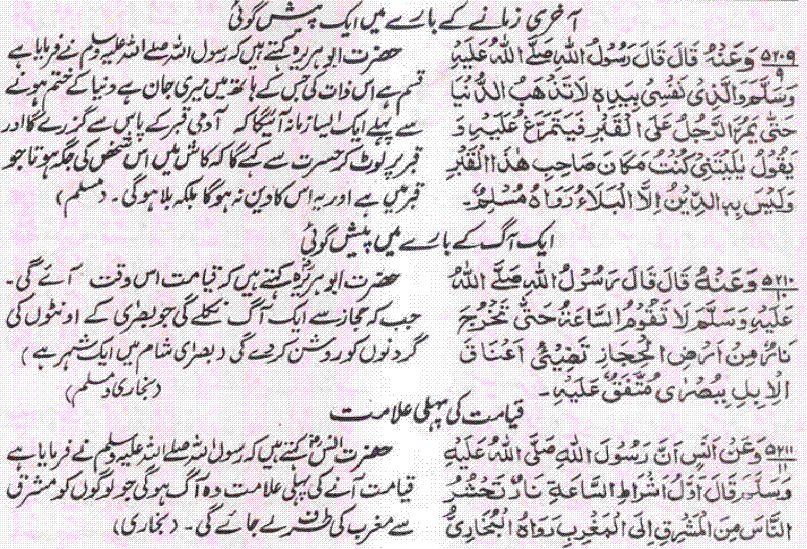 آخری زمانے کے بارے میں ایک پیش گوئی
۵۲۰۹ وَعَنْهُ قَالَ قَالَ رَسُوْلُ اللهِ صَلَّى اللهُ عَلَيْهِ
۹ وَسَلَّمَ وَالَّذِىْ نَفْسِىْ بِيَدِهٖ لَا تَذْهَبُ الدُّنْيَا
حَتّٰى يَمُرَّ الرَّجُلُ عَلَى الْقَبْرِ فَيَتَمَرَّغُ عَلَيْهِ وَ
يَقُوْلُ يٰلَيْتَنِىْ كُنْتُ مَكَانَ صَاحِبِ هٰذَا الْقَبْرِ
وَلَيْسَ بِهِ الدِّيْنُ اِلَّا الْبَلَاءُ رَوَاهُ مُسْلِمٌ۔
حضرت ابوہریرہؓ کہتے ہیں کہ رسول اللہ صلے اللہ علیہ وسلم نے فرمایا ہے
قسم ہے اس ذات کی جس کے ہاتھ میں میری جان ہے دنیا کے ختم ہونے
سے پہلے ایک ایسا زمانہ آئیگا کہ آدمی قبر کے پاس سے گزرے گا اور
قبر پر لوٹ کر حسرت سے کہے گا کہ کاش میں اس شخص کی جگہ ہوتا جو
قبر میں ہے اور یہ اس کا دین نہ ہوگا بلکہ بلا ہوگی۔ (مسلم)
ایک آگ کے بارے میں پیش گوئی
۵۲۱۰ وَعَنْهُ قَالَ قَالَ رَسُوْلُ اللهِ صَلَّى اللهُ
۱۰ عَلَيْهِ وَسَلَّمَ لَا تَقُوْمُ السَّاعَةُ حَتّٰى تَخْرُجَ
نَارٌ مِنْ اَرْضِ الْحِجَازِ تُضِيْئُ اَعْنَاقَ
الْاِبِلِ بِبُصْرٰى مُتَّفَقٌ عَلَيْهِ۔
حضرت ابوہریرہؓ کہتے ہیں کہ قیامت اس وقت آئے گی۔
جب کہ حجاز سے ایک آگ نکلے گی جو بصرٰی کے اونٹوں کی
گردنوں کو روشن کردے گی (بصرٰی شام میں ایک شہر ہے)
(بخاری ومسلم)
قیامت کی پہلی علامت
۵۲۱۱ وَعَنْ اَنَسٍ اَنَّ رَسُوْلَ اللهِ صَلَّى اللهُ عَلَيْهِ
۱۱ وَسَلَّمَ قَالَ اَوَّلُ اَشْرَاطِ السَّاعَةِ نَارٌ تَحْشُرُ
النَّاسَ مِنَ الْمَشْرِقِ اِلَى الْمَغْرِبِ رَوَاهُ الْبُخَارِىُّ
حضرت انسؓ کہتے ہیں کہ رسول اللہ صلے اللہ علیہ وسلم نے فرمایا ہے
قیامت آنے کی پہلی علامت وہ آگ ہوگی جو لوگوں کو مشرق
سے مغرب کی طرف لے جائے گی۔ (بخاری)